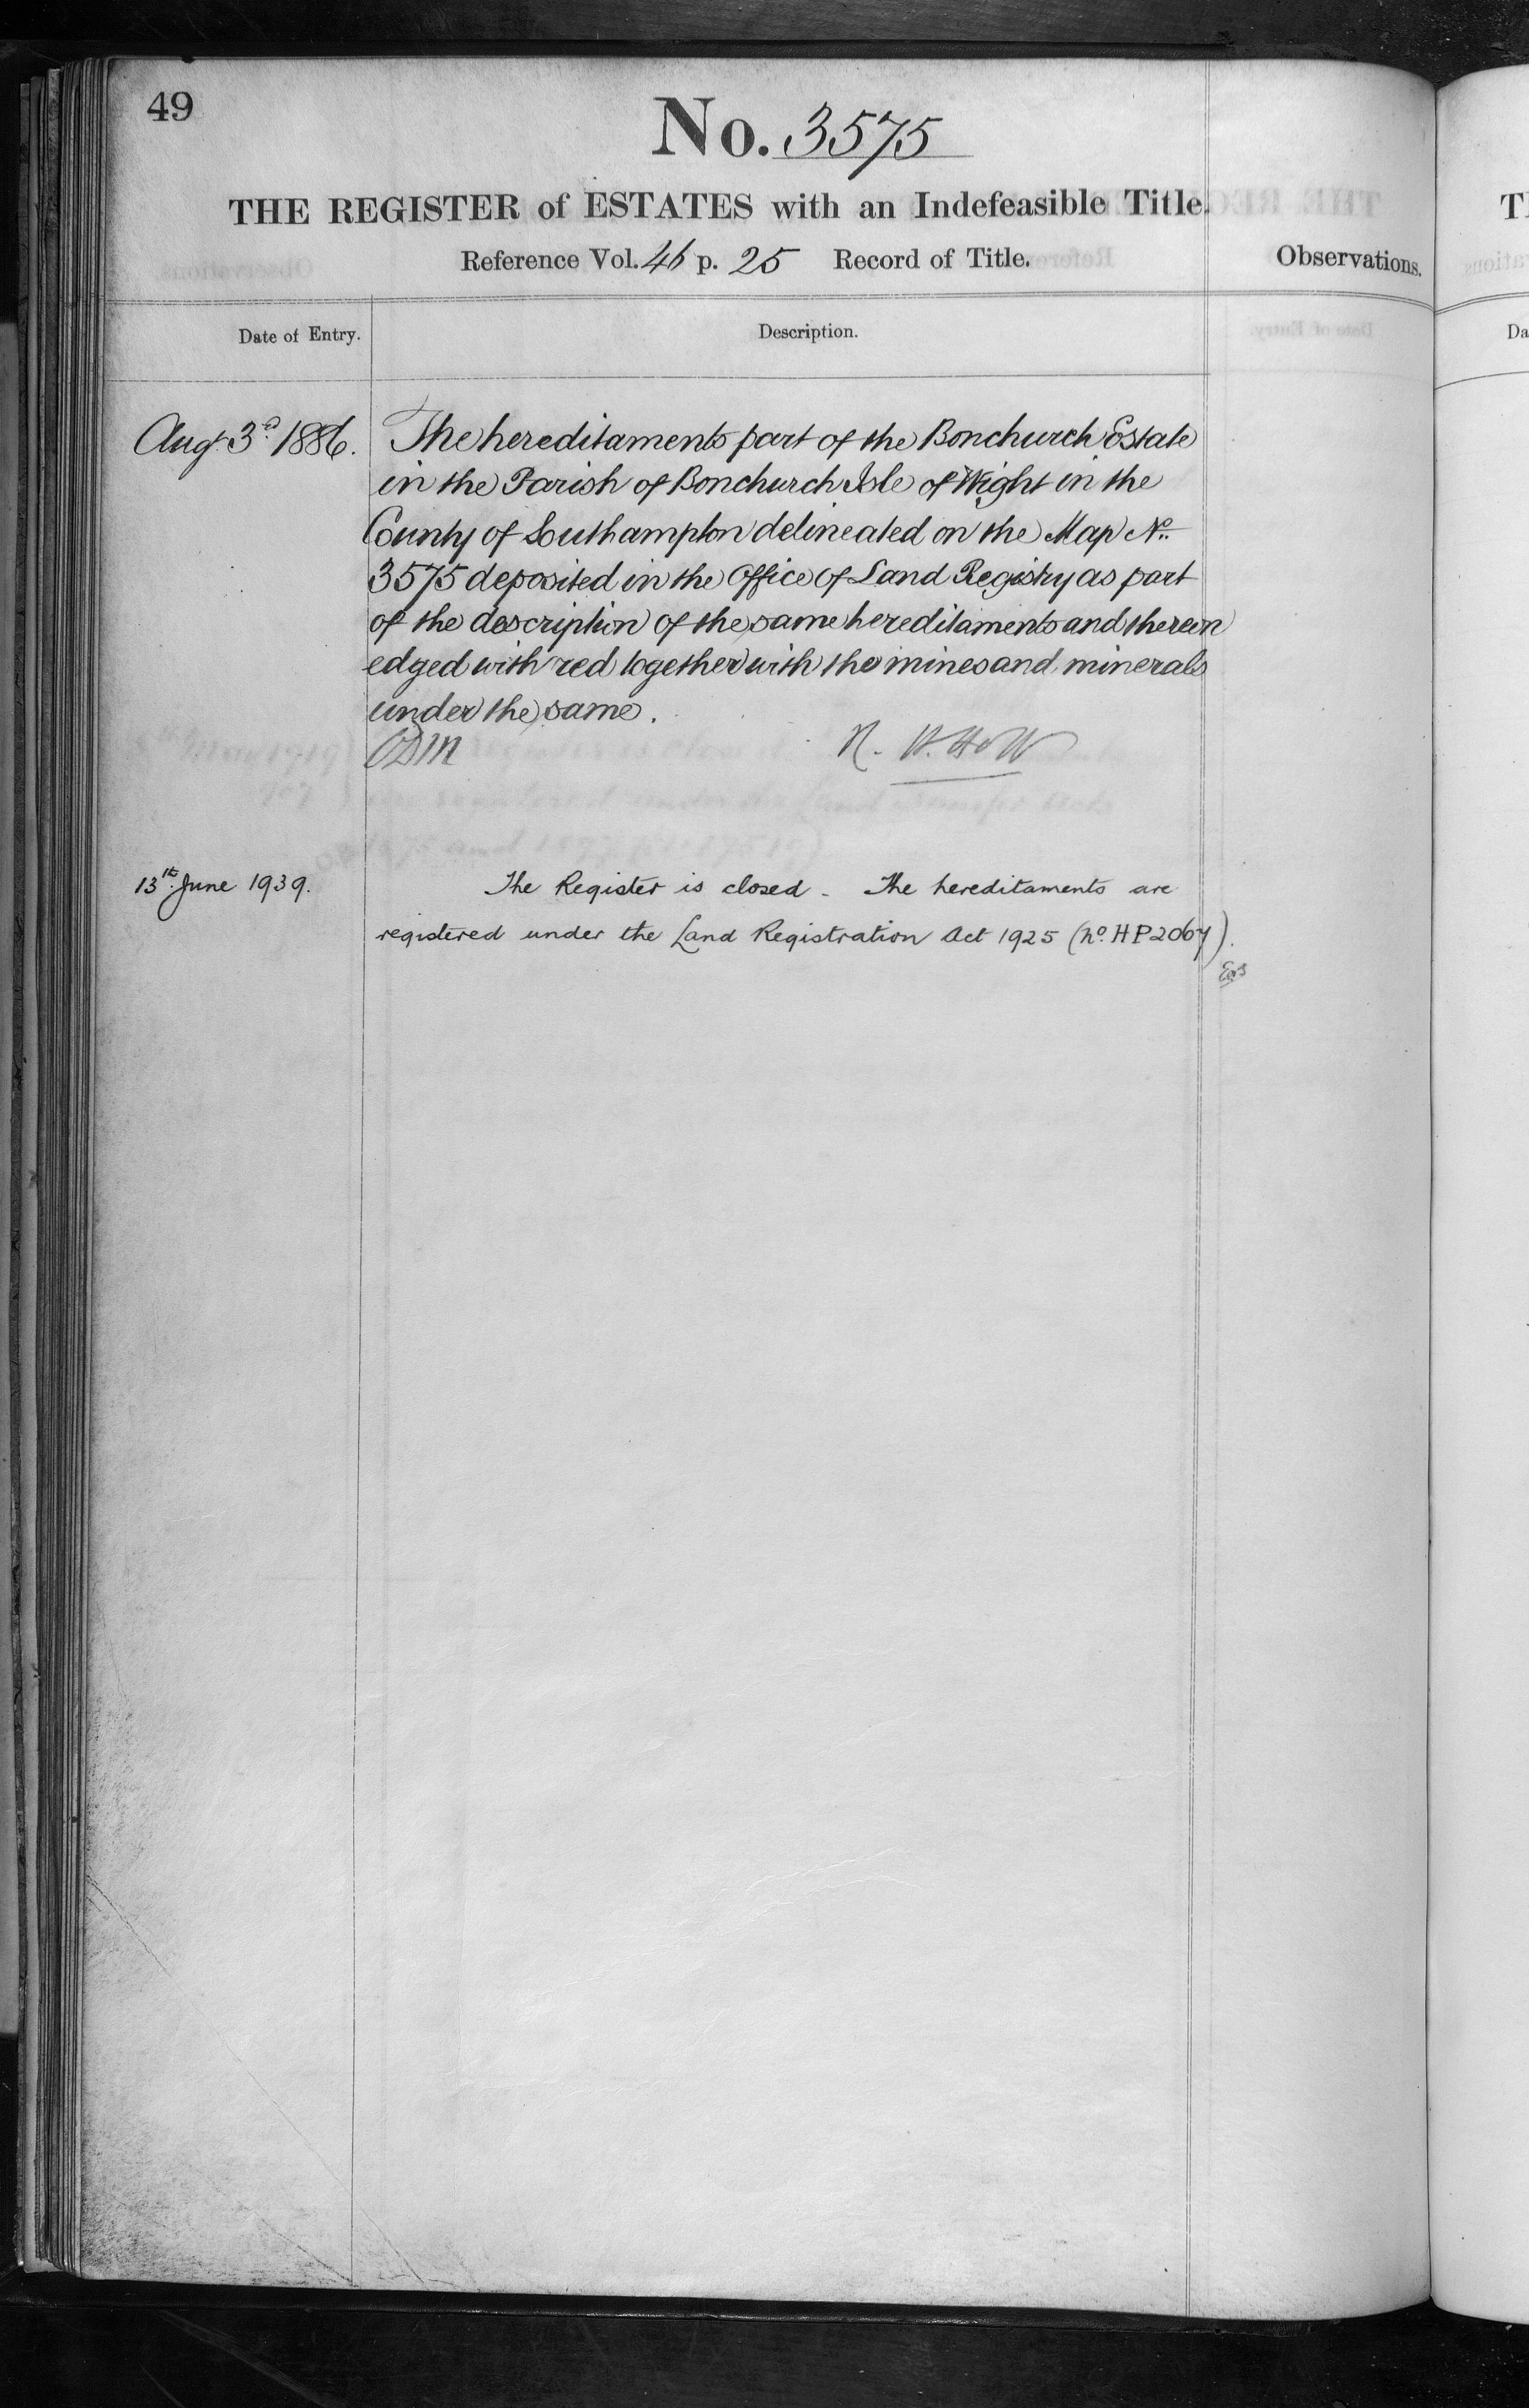 49
No. 3575
THE REGISTER of ESTATES with an Indefeasible Title.
Reference Vol. 46 p. 25 Record of Title.
Observations.
Date of Entry.
Description.
Augt. 3d. 1886.
The hereditaments part of the Bonchurch Estate
in the Parish of Bonchurch Isle of Wight in the
County of Southampton delineated on the Map No.
3575 deposited in the Office of Land Registry as part
of the description of the same hereditaments and therein
edged with red together with the mines and minerals
under the same.
13th. June 1939.
The Register is closed - The hereditaments are
registered under the Land Registration Act 1925 (No. HP2067).